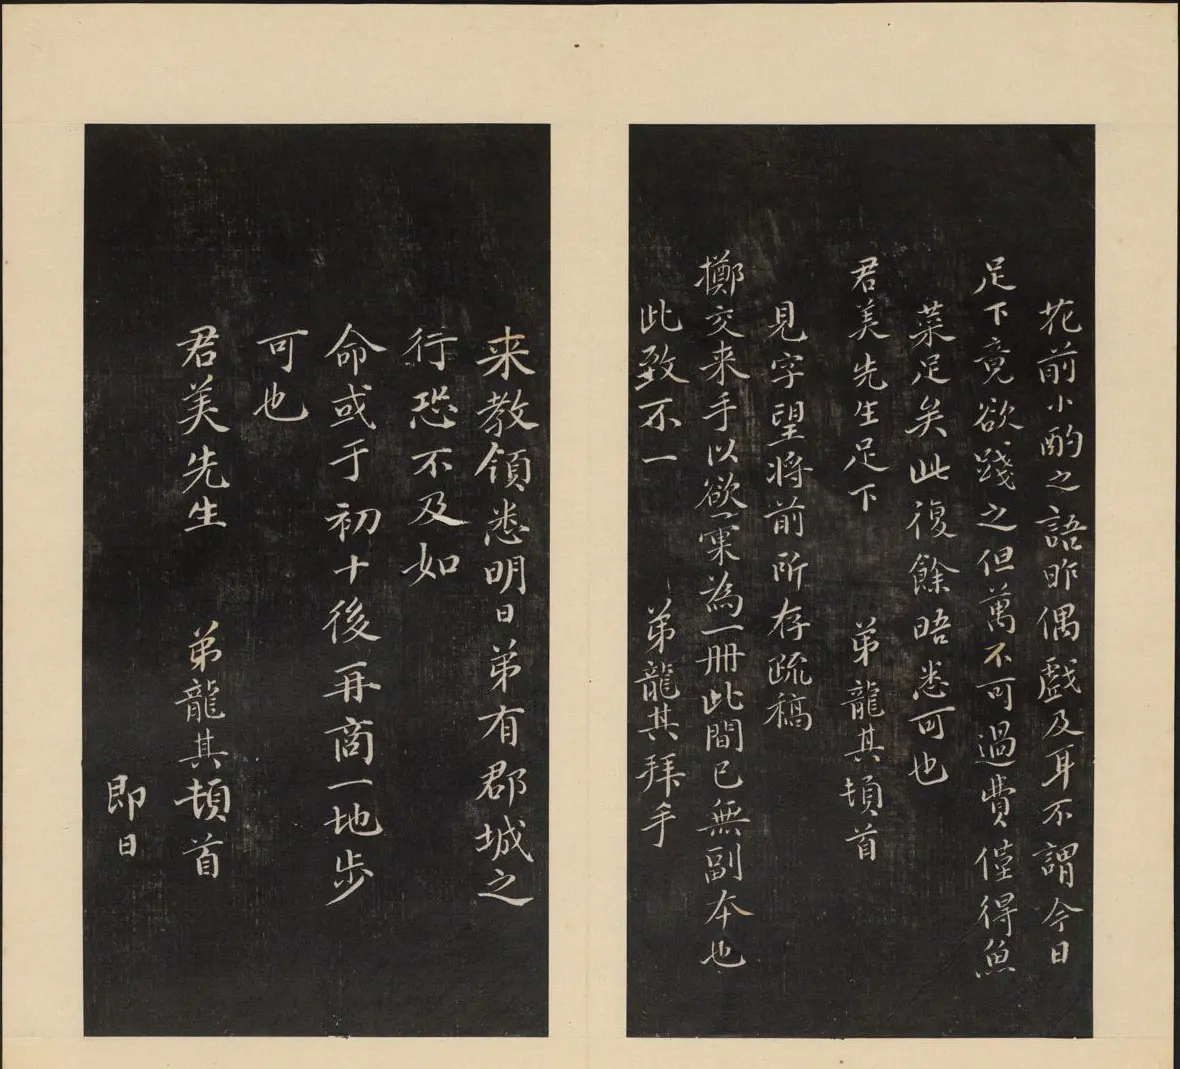 花前小酌之語昨偶戲及耳不謂今日
足下竟欲踐之但萬不可過費僅得魚
菜足矣此復餘晤悉可也
君美先生足下　弟龍其頓首
見字望將前所存疏稿
擲交来手以欲一窠為一冊此間已無副本也
此致不一　弟龍其拜手
来教領悉明日弟有郡城之
行恐不及如
命或于初十後再商一地步
可也
君美先生　弟龍其頓首
即日